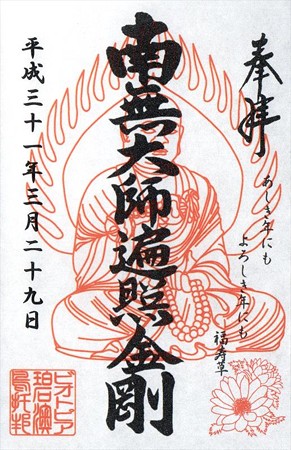 奉拝
あしき年にも
よろしき年にも
福寿草
南無大師遍照金剛
平成三十一年三月二十九日